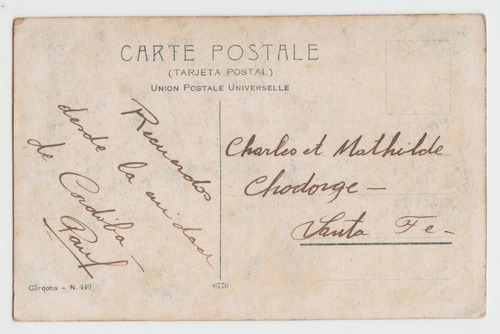 CARTE POSTALE
(TARJETA POSTAL)
UNION POSTALE UNIVERSELLE
Recuerdos
desde la ciudad
de Cordoba —
Paul
Charles et Mathilde
Chodorge —
Santa Fe —
Córdoba — N. 440
6779